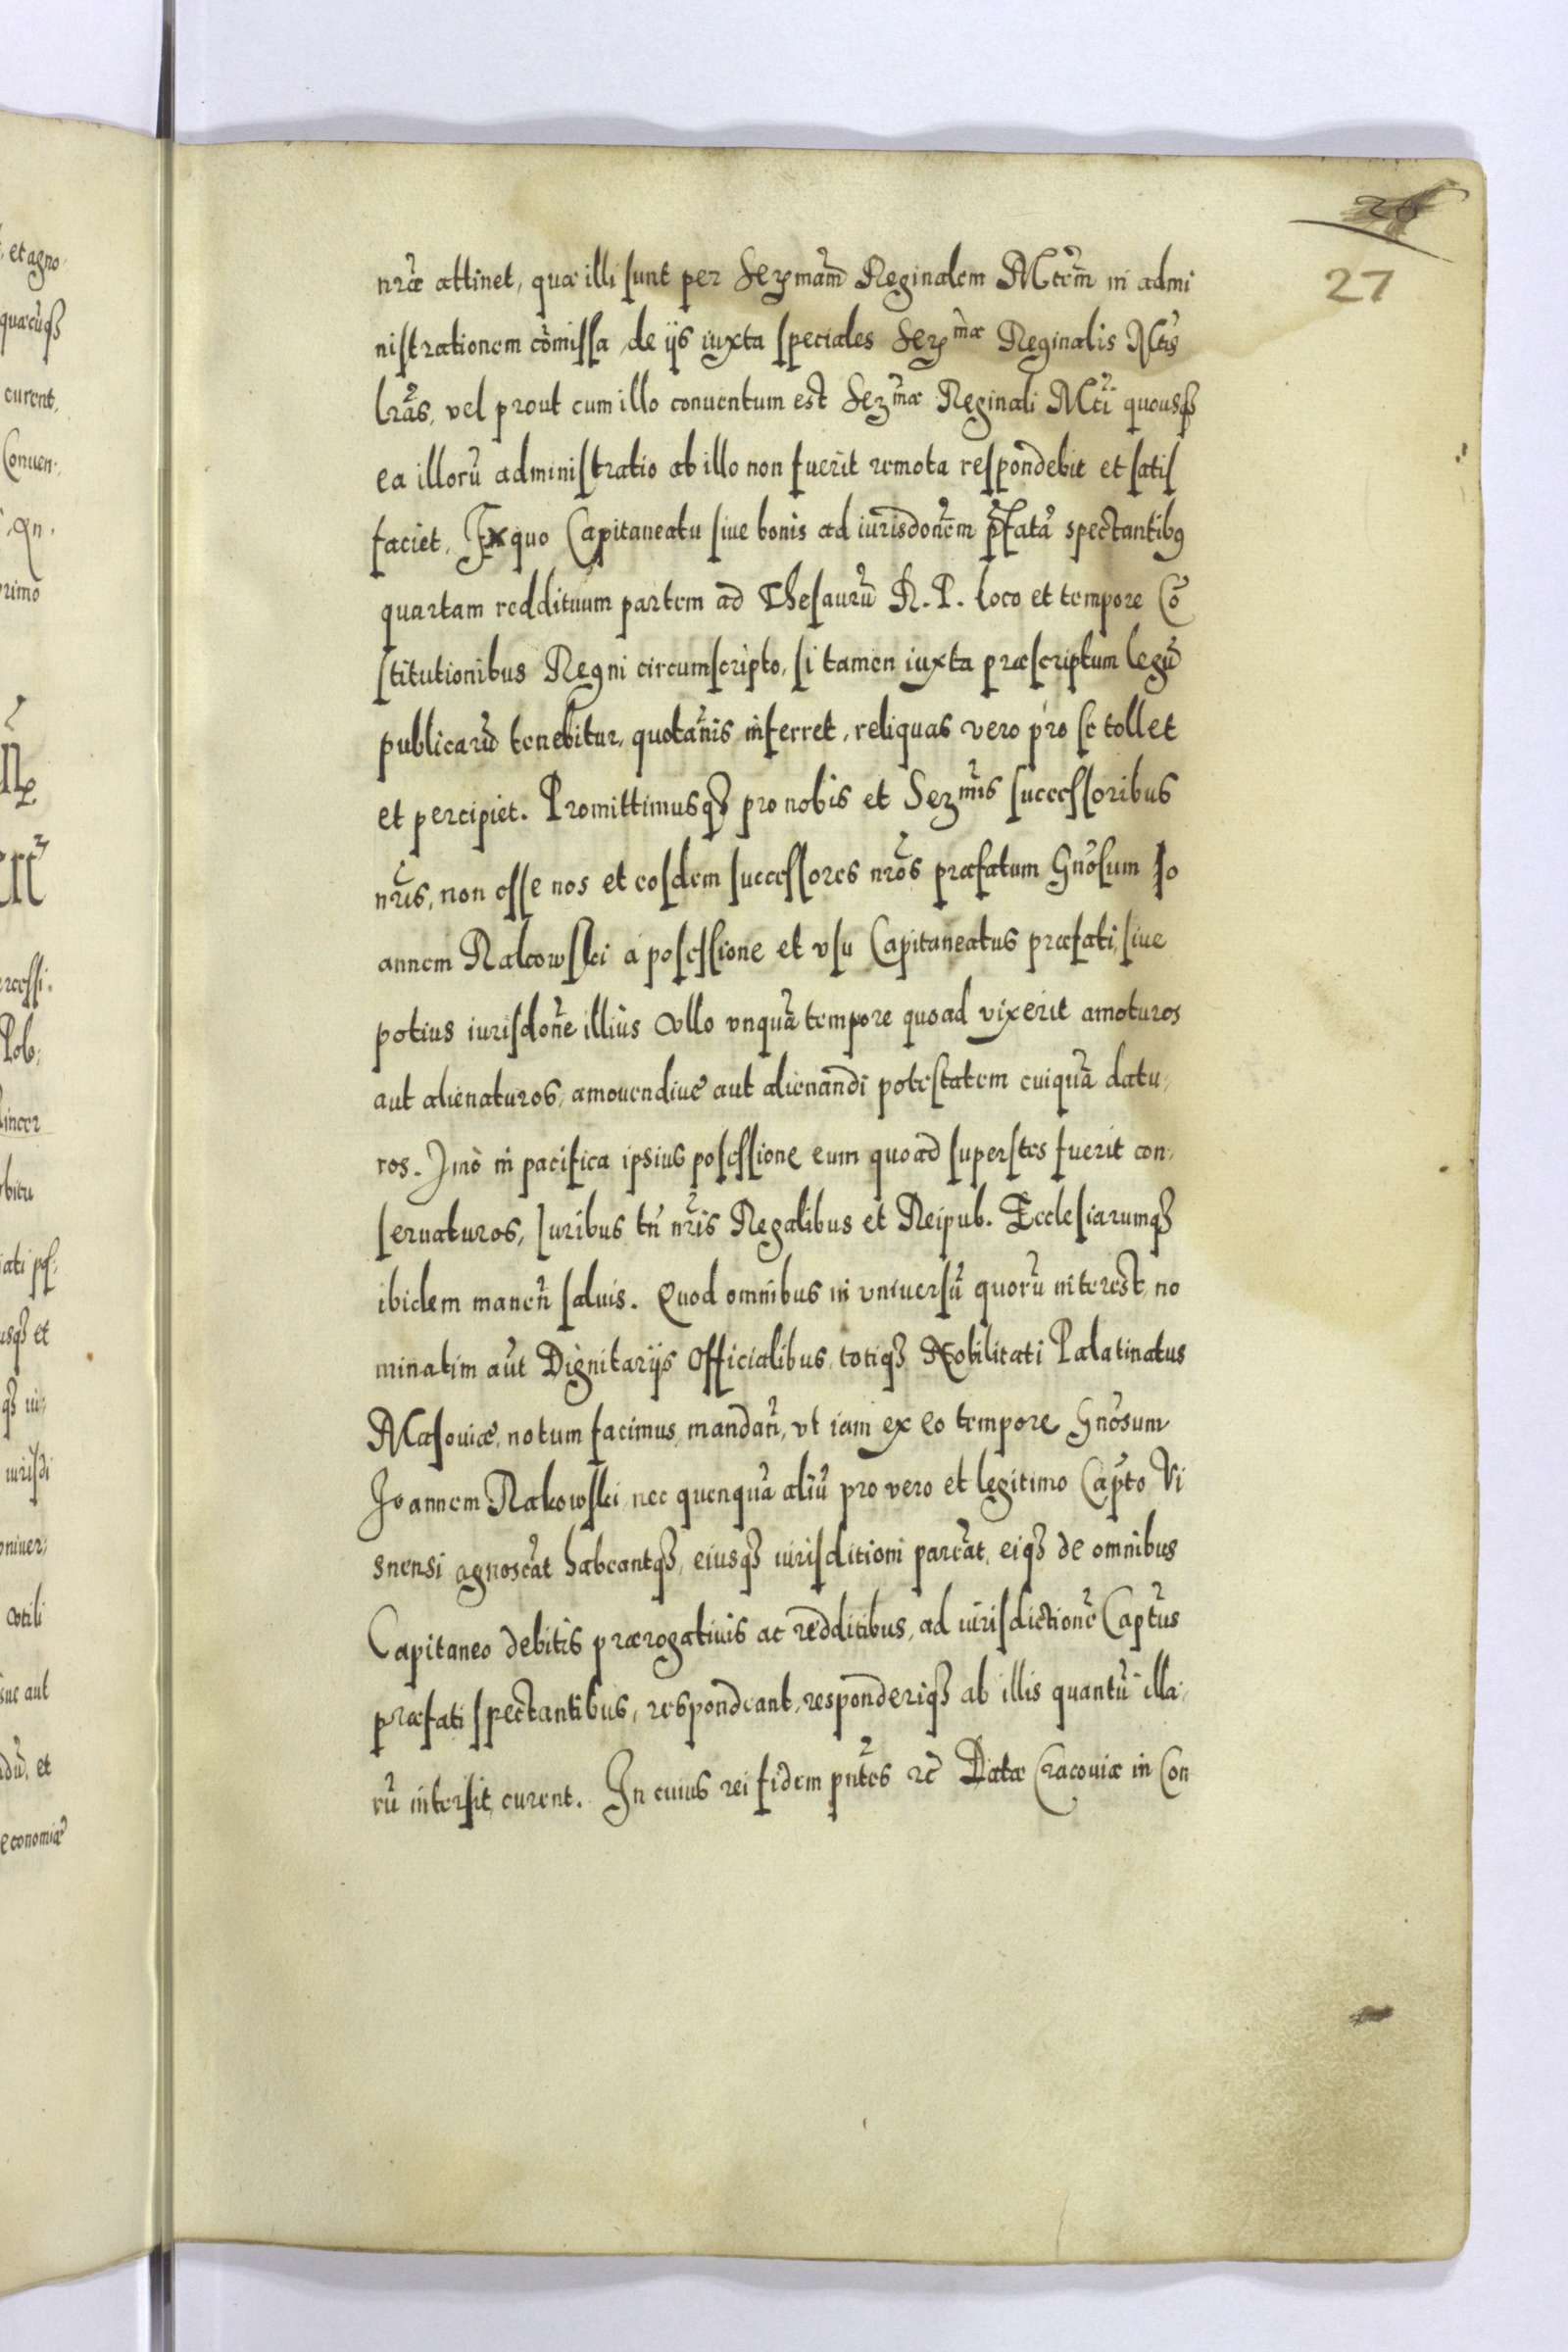 26
27
nrãe attinet, quæ illi sunt per Sermam̃ Reginalem Mtem̃ in admi
nistrationem com̃issa, de ijs iuxta speciales Sermæ Reginalis Mtis̃
lrãs, vel prout cum illo conuentum est Sermæ Reginali Mtĩ quousqȝ
ea illorũ administratio ab illo non fuerit remota respondebit et satis
faciet, Ex quo Capitaneatu siue bonis ad iurisdonẽm p̃fatã spectantibꝰ
quartam reddituum partem ad Thesaurũ R. P. loco et tempore Cõ
stitutionibus Regni circumscripto, si tamen iuxta præscriptum legũ
publicarũ tenebitur, quotañis inferret, reliquas vero pro se tollet
et percipiet. Promittimusqȝ pro nobis et Sermis successoribus
nrĩs, non esse nos et eosdem successores nrõs præfatum Gnõsum Jo
annem Rakowski à possessione et vsu Capitaneatus præfati, siue
potius iurisdonẽ illius vllo vnquã tempore quoad vixerit amoturos
aut alienaturos, amouendiue aut alienandi potestatem cuiquã datu,
ros. Imò in pacifica ipsius possessione eum quoad superstes fuerit con,
seruaturos, Iuribus tñ nrĩs Regalibus et Reipub. Ecclesiarumqȝ
ibidem maneñ saluis. Quod omnibus in vniuersũ quorũ interest, no
minatim aũt Dignitarijs Officialibus, totiqȝ Nobilitati Palatinatus
Masouiæ, notum facimus, mandañ, vt iam ex eo tempore Gnõsum
Joannem Rakowski nec quenquã aliũ pro vero et legitimo Capt̃o Vi
snensi agnoscãt habeantqȝ, eiusqȝ iurisditioni pareãt, eiqȝ de omnibus
Capitaneo debitis prærogatiuis ac redditibus, ad iurisdictionẽ Capt̃us
præfati spectantibus, respondeant, responderiqȝ ab illis quantũ illa,
rũ intersit, curent. In cuius rei fidem pnt̃es rc̃ Datæ Cracouiæ in Con